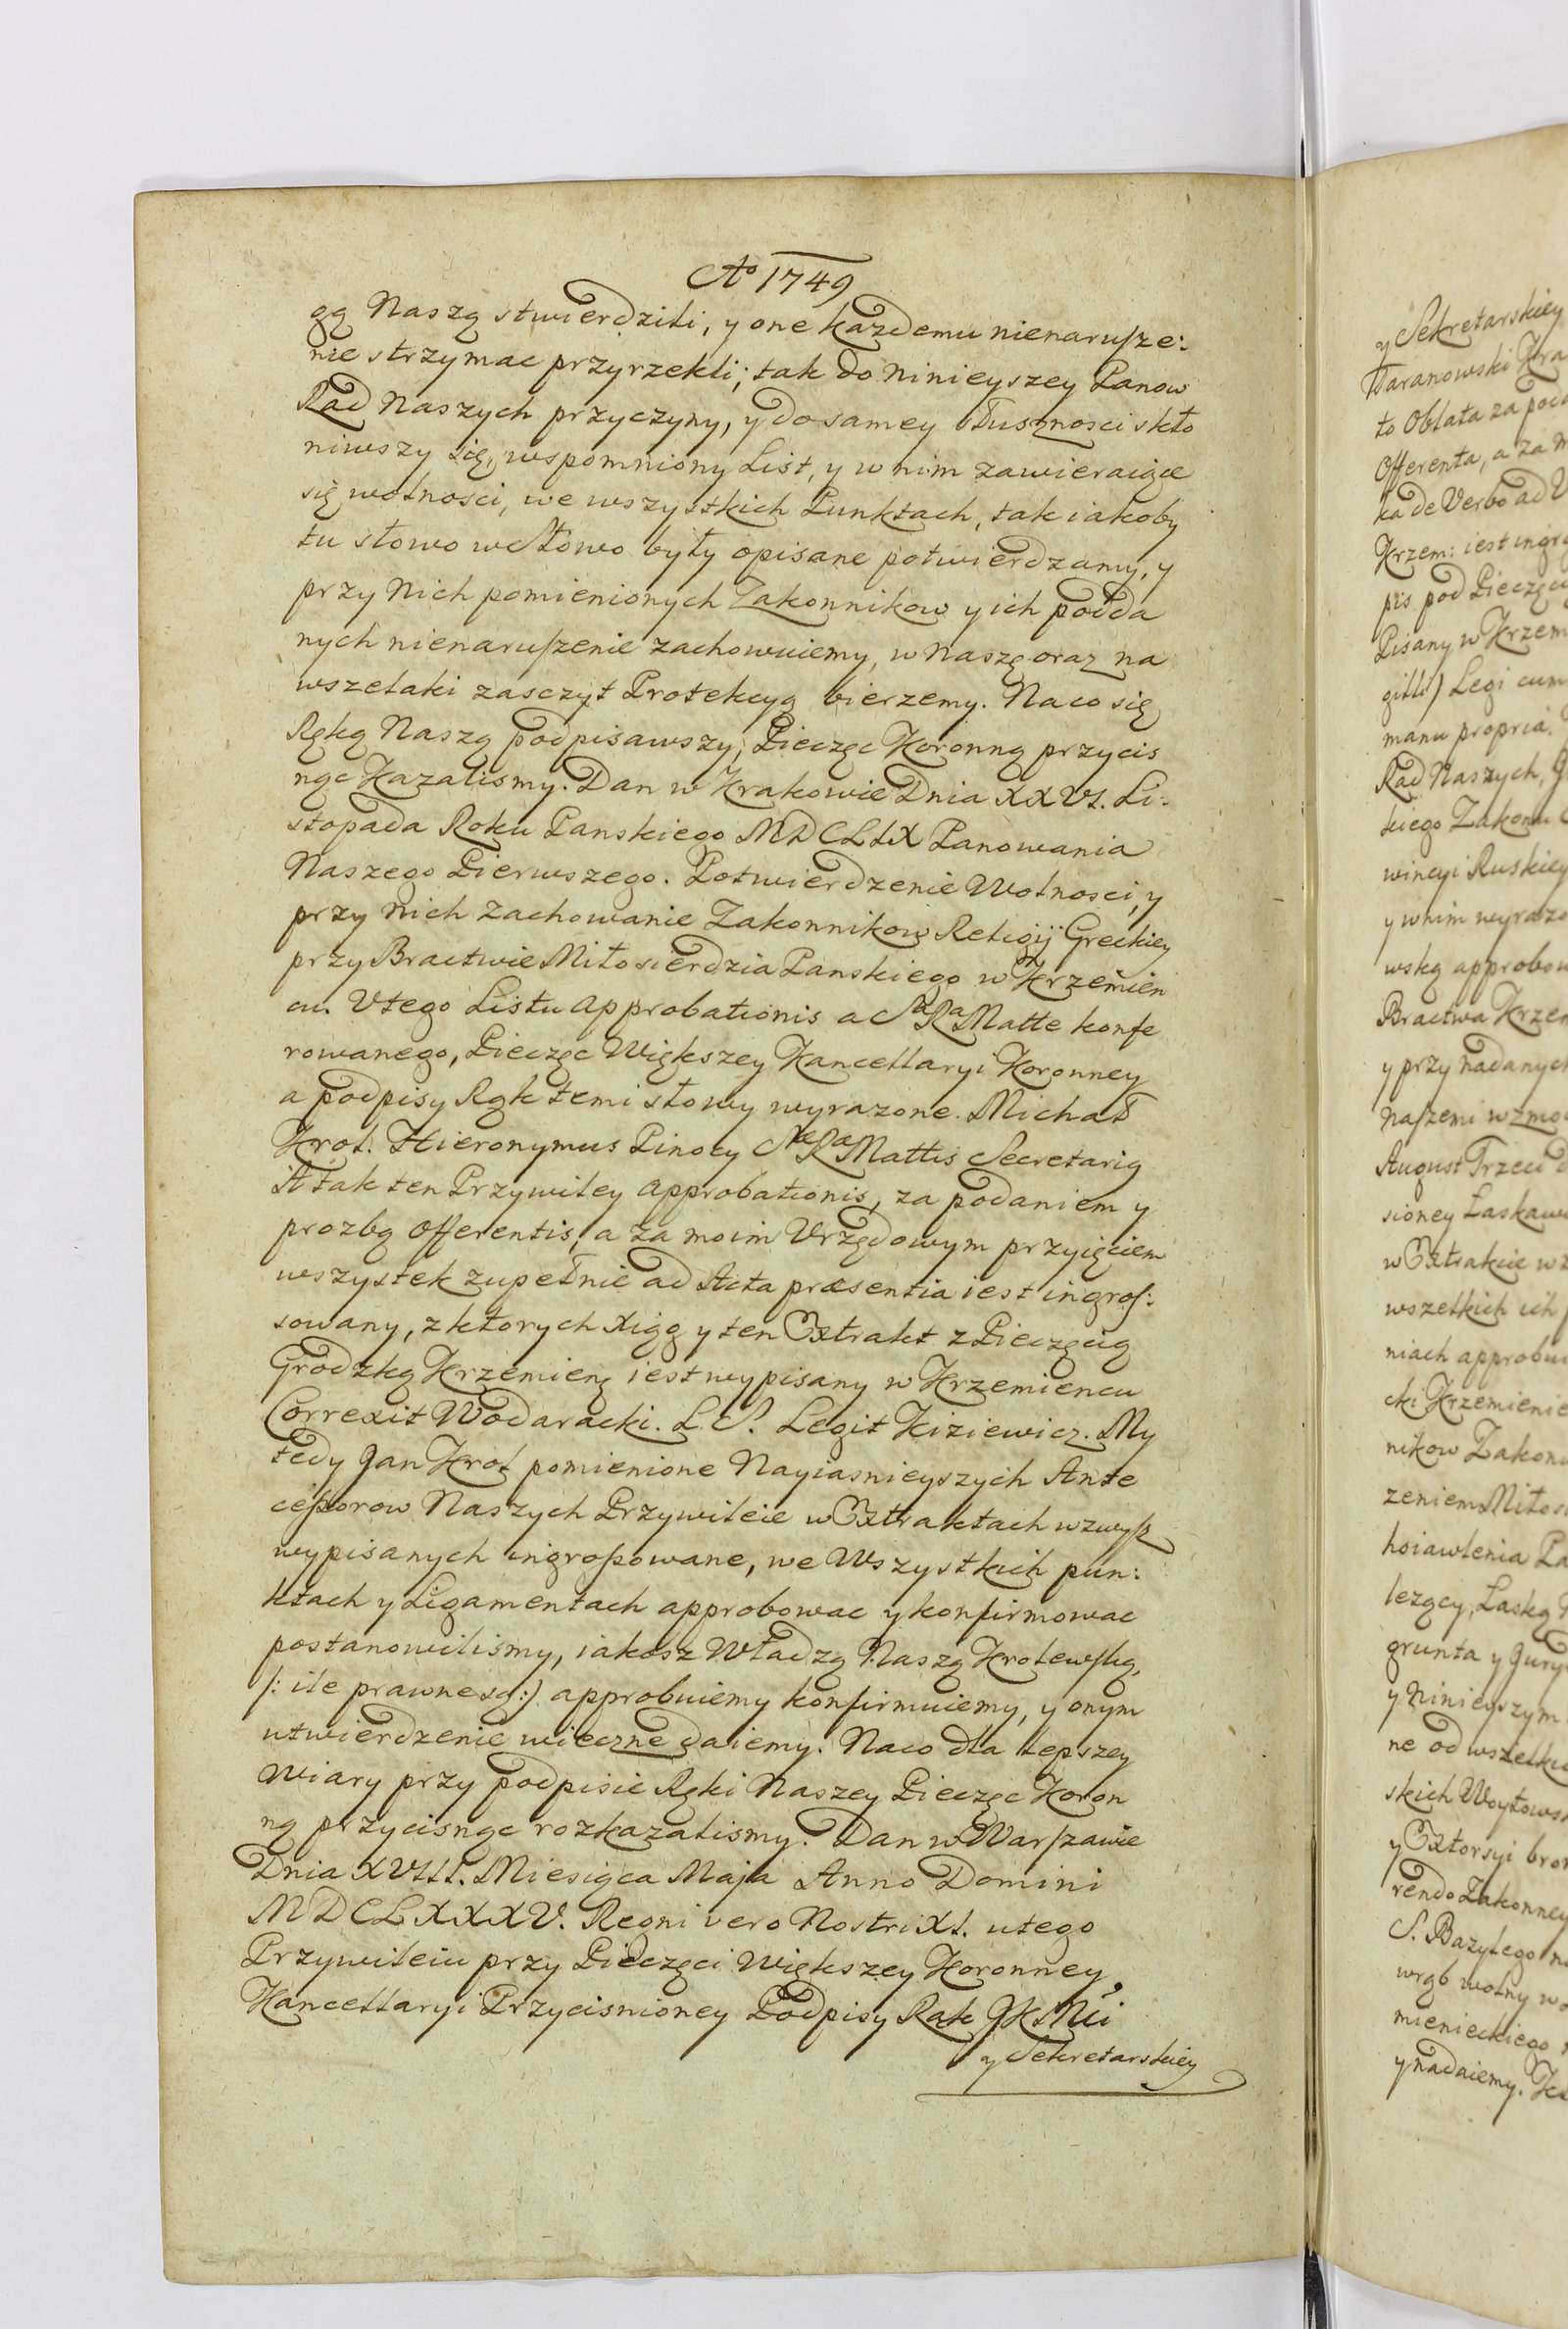 Ao 1749
gą Naszą stwierdzili, y one każdemu nienarusze:
nie strzymac przyrzekli; tak do Ninieyszey Panow
Rad Naszych przyczyny, y do samey słusznosci skło
niwszy się, wspomniony List, y w nim zawieraiące
się wolnosci, we wszystkich Punktach, tak iakoby
tu słowo w słowo były opisane potwierdzamy, y
przy Nich pomienionych Zakonnikow y ich podda
nych nienaruszenie zachowuiemy, w Naszę oraz na
wszelaki zasczyt Protekcyą bierzemy. Na co się
Ręką Naszą podpisawszy, Pieczęc Koronną przycis
nąc Kazalismy. Dan w Krakowie Dnia XXVI. Li:
stopada Roku Panskiego MDCLIX Panowania
Naszego Pierwszego. Potwierdzenie Wolnosci, y
przy Nich zachowanie Zakonnikow Religij Greckiey
przy Bractwie Miłosierdzia Panskiego w Krzemien
cu. V tego Listu approbationis a Sa Ra Matte konfe
rowanego, Pieczęc Większey Kancellaryi Koronney
a podpisy Rąk temi słowy wyrazone. Michał
Krol. Hieronymus Pinocy Sæ Ræ Mattis Secretariq
A tak ten Przywiley approbationis, za podaniem y
prozbą Offerentis, a za moim Vrzędowym przyięciem
wszystek zupełnie ad Acta præsentia iest ingros:
sowany, z ktorych Xiąg y ten Extrakt z Pieczęcią
Grodzką Krzemieną iest wypisany w Krzemiencu
Correxit Wodaracki. L. S. Legit Kiziewicz. My
tedy Jan Krol pomienione Nayiasnieyszych Ante
cessorow Naszych Przywileie w Extraktach wzwysz
wypisanych ingrossowane, we Wszystkich pun:
ktach y Ligamentach approbowac y konfirmowac
postanowilismy, iakosz Władzą Naszą Krolewską,
/: ile prawne są :/ approbuiemy konfirmuiemy, y onym
utwierdzenie wieczne daiemy. Na co dla lepszey
Wiary przy podpisie Ręki Naszey Pieczęc Koron
ną przycisnąc rozkazalismy. Dan w Warszawie
Dnia XVIII. Miesiąca Maja Anno Domini
MDCLXXXV. Regni vero Nostri XI. u tego
Przywileiu przy Pieczęci Większey Koronney
Kancellaryi Przycisnioney Podpisy Rąk JK Mci
y Sekretarskiey
y Sekretarskiey
Taranowski
to Oblata za
Offerenta, a za
ka de Verbo ad
Krzem: iest
pis pod Pieczęcią
Pisany w Krzem
Legi cum
manu propria.
Rad Naszych,
kiego Zakonu
wincyi Ruskiey
y w nim
wską
Bractwa
y przy nadanych
Naszemi
August Trzeci
sioney Laskaw
w Extrakcie
wszelkich ich
niach
cki
nikow
zeniem
leżący, Laską
grunta y
y Ninieyszym
ne od
skich
y Extorsyi
rendo Zakonney
S. Bazylego
wrąb wolny
mienieckiego
y nadaiemy.